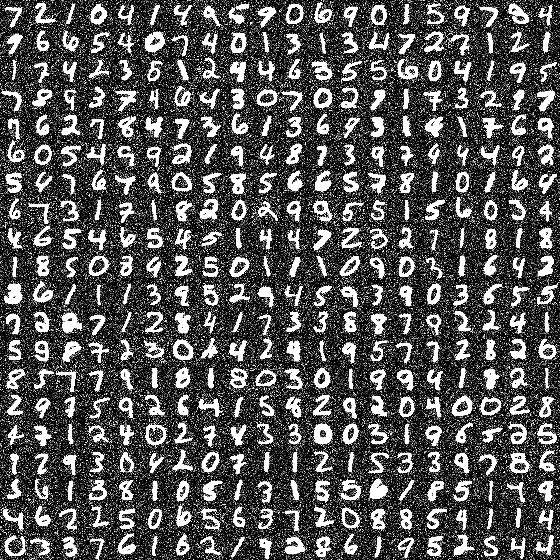 7 2 1 0 4 1 4 9 5 9 0 6 9 0 1 5 9 7 8 4
9 6 6 5 4 0 7 4 0 1 3 1 3 4 7 2 7 1 2 1
1 7 4 2 3 5 1 2 4 4 6 3 5 5 6 0 4 1 9 5
7 8 9 3 7 4 6 4 3 0 7 0 2 9 1 7 3 2 9 7
7 6 2 7 8 4 7 3 6 1 3 6 9 3 1 4 1 7 6 9
6 0 5 4 9 9 2 1 9 4 8 7 3 9 7 4 4 4 9 2
5 4 7 6 7 9 0 5 8 5 6 6 5 7 8 1 0 1 6 4
6 7 3 1 7 1 8 2 0 2 9 9 5 5 1 5 6 0 3 4
4 6 5 4 6 5 4 5 1 4 4 7 2 3 2 7 1 8 1 8
1 8 5 0 8 9 2 5 0 1 1 1 0 9 0 3 1 6 4 2
3 6 1 1 1 3 9 5 2 9 4 5 9 3 9 0 3 6 5 5
7 2 2 7 1 2 8 4 1 7 3 3 8 8 7 9 2 2 4 1
5 9 8 7 2 3 0 4 4 2 4 1 9 5 7 7 2 8 2 6
8 5 7 7 9 1 8 1 8 0 3 0 1 9 9 4 1 8 2 1
2 9 7 5 9 2 6 4 1 5 8 2 9 2 0 4 0 0 2 8
4 7 1 2 4 0 2 7 4 3 3 0 0 3 1 9 6 5 2 5
9 2 9 3 0 4 2 0 7 1 1 2 1 5 3 3 9 7 8 6
3 6 1 3 8 1 0 5 1 3 1 5 5 6 1 8 5 1 7 9
4 6 2 2 5 0 6 5 6 3 7 2 0 8 8 5 4 1 1 4
0 3 3 7 6 1 6 2 1 9 2 8 6 1 9 5 2 5 4 4